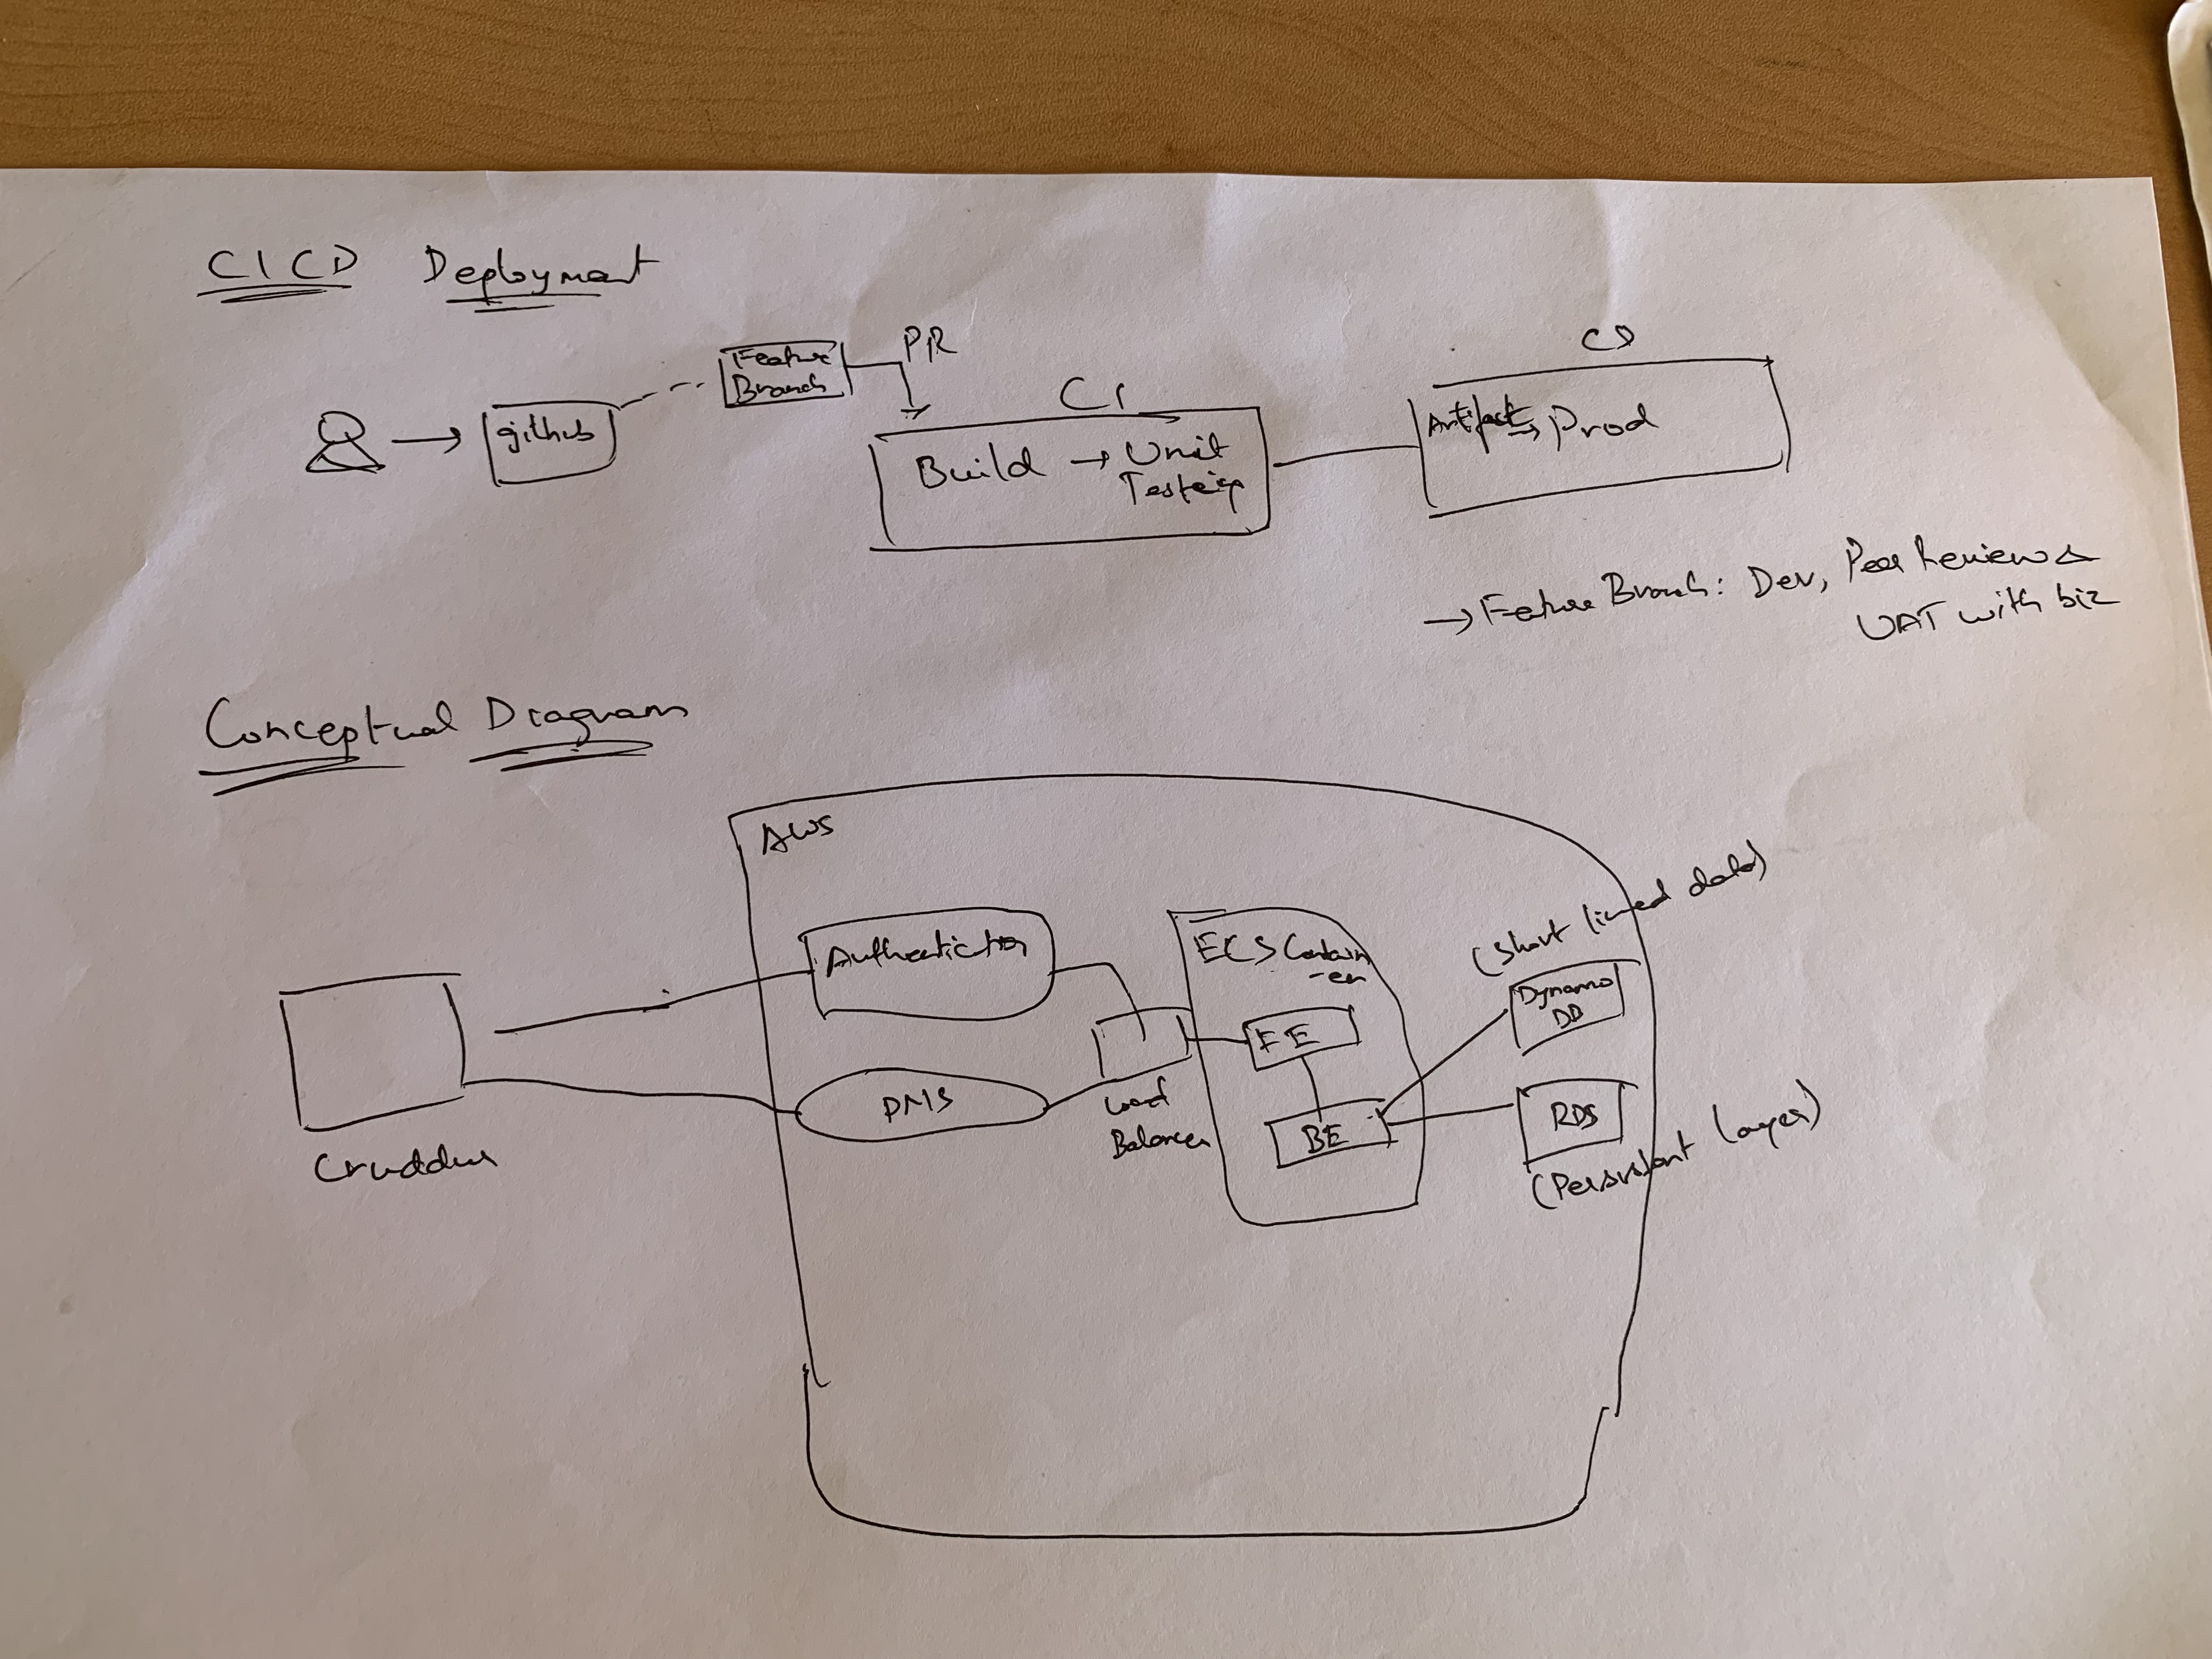 CICD Deployment
github
Feature
Branch
PR
CI
Build → Unit
Testing
CD
Artifact → Prod
→ Feature Branch: Dev, Peer Review &
UAT with biz
Conceptual Diagram
Cruddur
AWS
Authentication
DNS
Load
Balancer
ECS Contain
-er
FE
BE
(Short lived data)
Dynamo
DB
RDS
(Persistant layer)